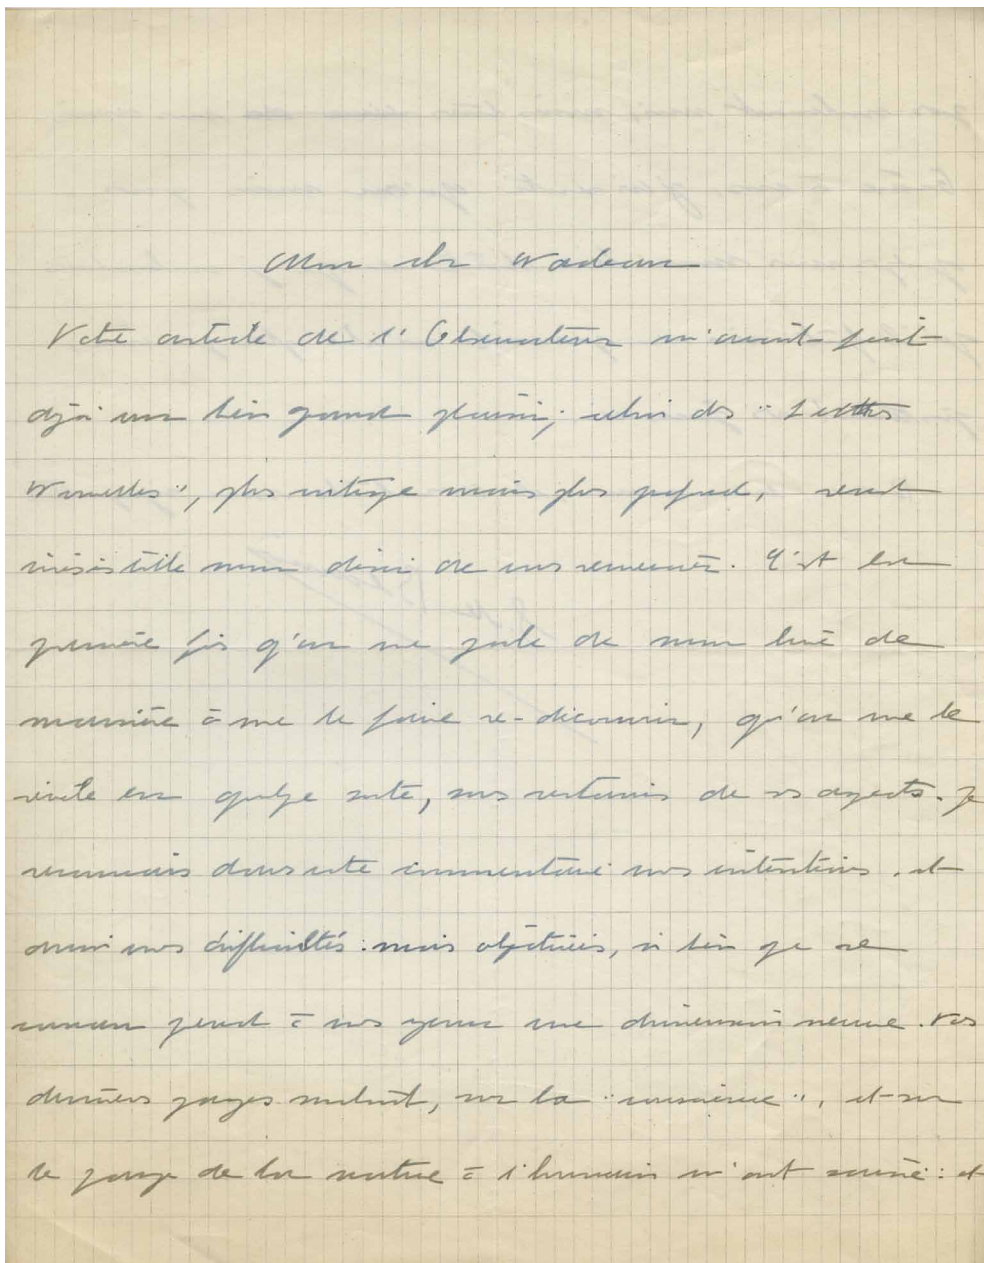 Mon cher Nadeau
Votre article de l'Observateur m'avait fait
déjà un bien grand plaisir; celui des "Lettres
Nouvelles", plus critique mais plus profond, rend
irrésistible mon désir de vous remercier. C'est la
première fois qu'on me parle de mon livre de
manière à me le faire re-découvrir, qu'on me le
révèle en quelque sorte, sous certains de ses aspects. Je
reconnais dans votre commentaire mes intentions, et
aussi mes difficultés: mais objectivés, si bien que ce
roman prend à mes yeux une dimension neuve. Vos
dernières pages surtout, sur la "conscience", et sur
le passage de la nature à l'humain m'ont : et